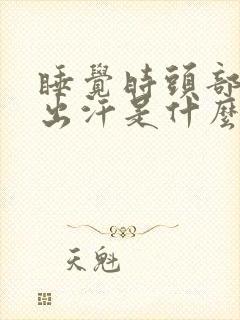 睡覺時頭部
出汗是什麼
天魁